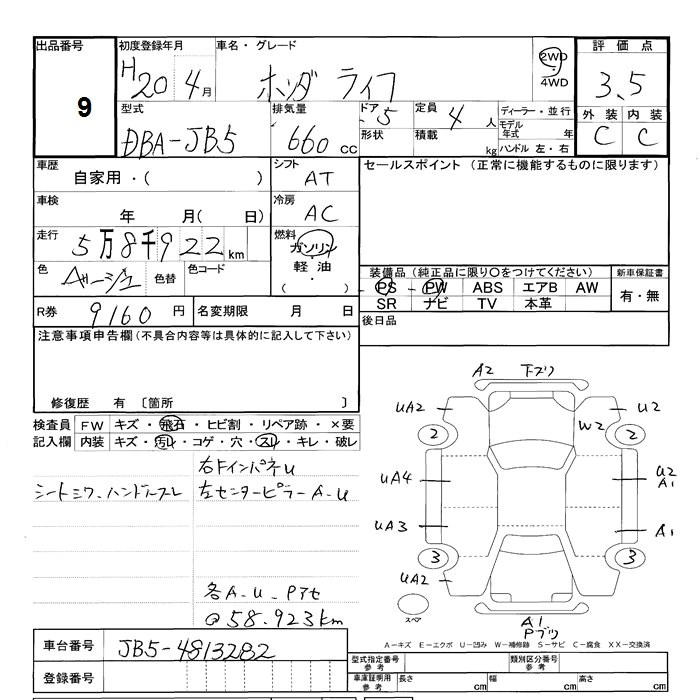 出品番号 初度登録年月 車名・グレード 2WD・4WD 評価点
9 H20 4月 ホンダ ライフ 3.5
型式 排気量 ドア 定員 ディーラー・並行 外装 内装
DBA-JB5 660cc 5 4人 モデル年式 年 C C
形状 積載 kg ハンドル 左・右
車歴 シフト セールスポイント (正常に機能するものに限ります)
自家用・( ) AT
車検 冷房
年 月(日) AC
走行 燃料
5万8千922km ガソリン・軽油・( )
色 色替 色コード 装備品 (純正品に限り〇をつけてください) 新車保証書
ベージュ PS PW ABS エアB AW 有・無
SR ナビ TV 本革
R券 9160円 名変期限 月 日 後日品
注意事項申告欄(不具合内容等は具体的に記入して下さい)
修復歴 有 〔箇所 〕
検査員 FW キズ・飛石・ヒビ割・リペア跡・×要
記入欄 内装 キズ・汚レ・コゲ・穴・スレ・キレ・破レ
右FインパネU
シートシワ、ハンドルスレ 左センターピラーA-U
各A、U、Pアセ
@58.923km
A2 下ブツ
UA2 U2
W2
2 2
UA4 U2
A1
UA3 A1
3 3
UA2
スペア A1
Pブツ
A-キズ E-エクボ U-凹み W-補修跡 S-サビ C-腐食 XX-交換済
車台番号 JB5-4813282
型式指定番号 参考 類別区分番号 参考
登録番号 車庫証明用 参考 長さ cm 幅 cm 高さ cm